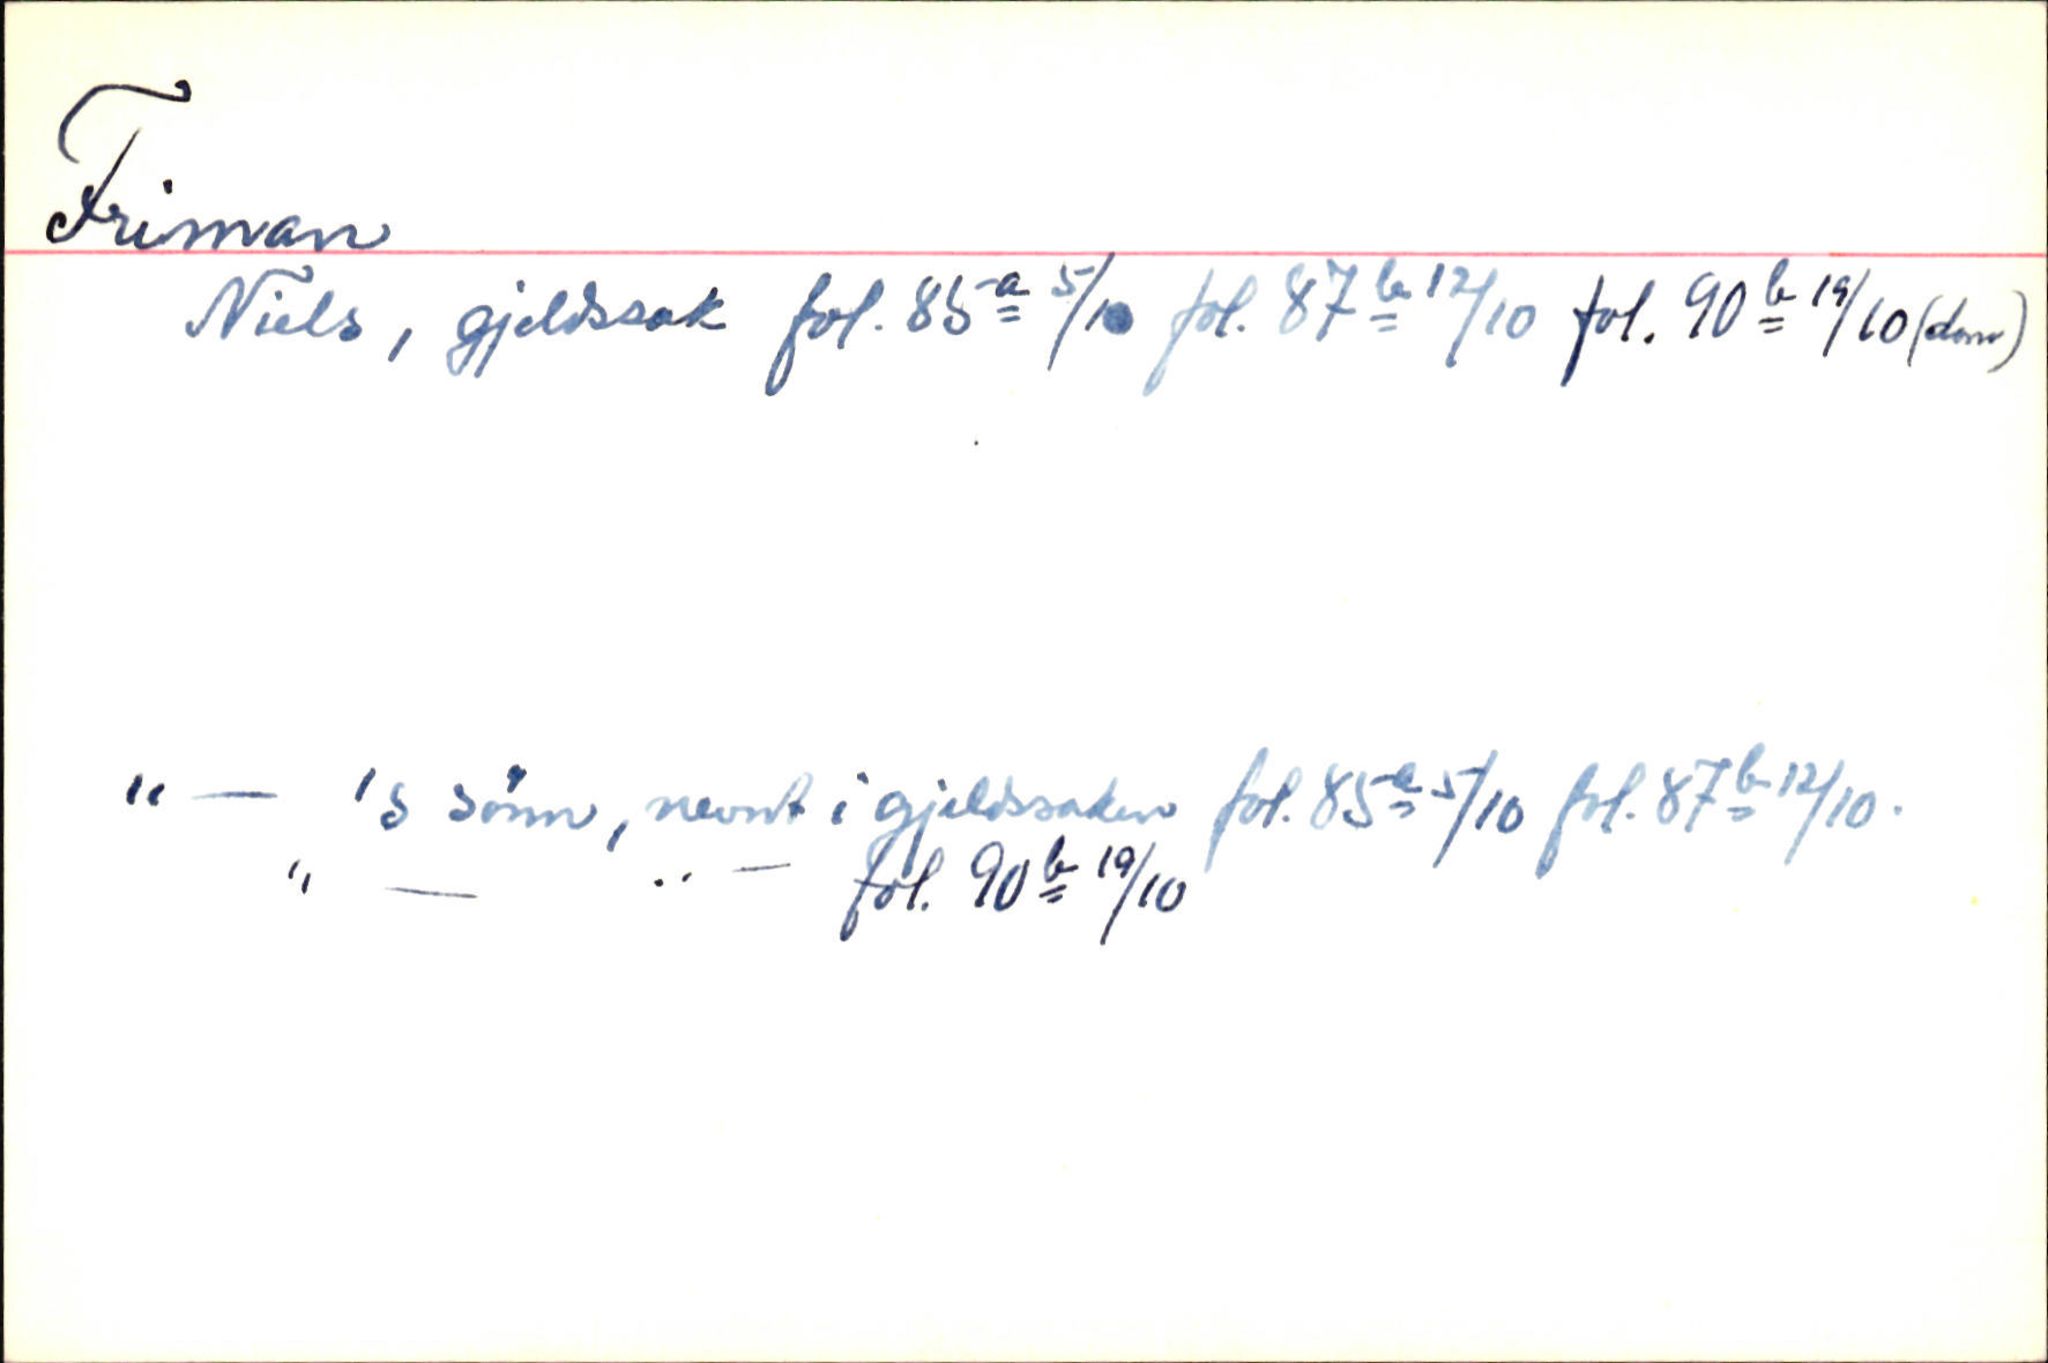 Friman
Niels, gjeldssak fol. 85a 5/10 fol. 87b 12/10 fol. 90b 19/10 (dom)
" — 's sönn, nevnt i gjeldssaken fol. 85a 5/10 fol. 87b 12/10.
" — " — fol. 90b 19/10